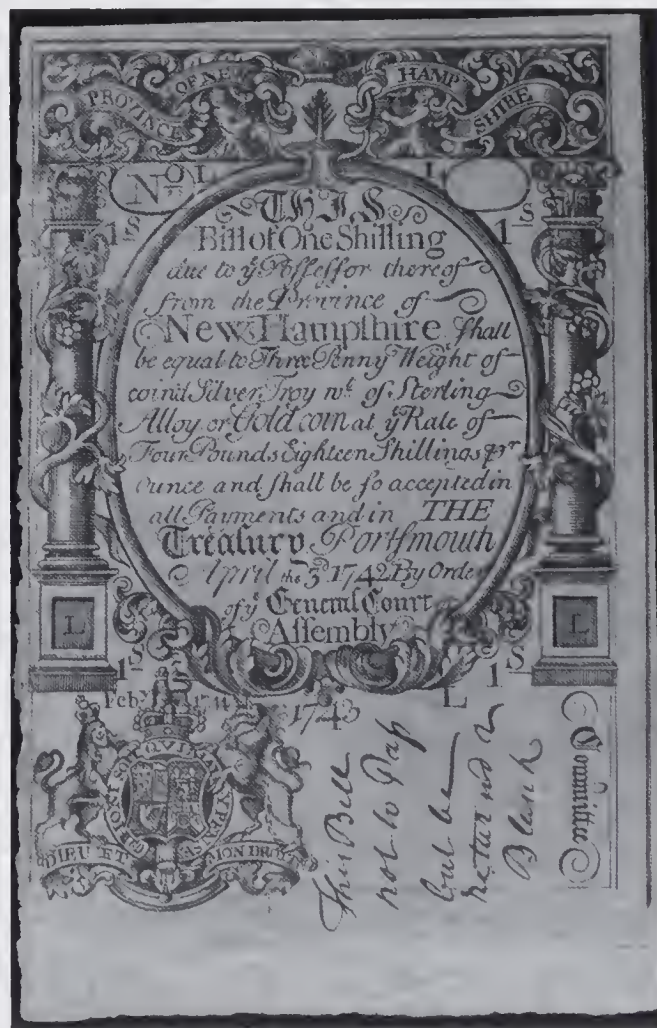 PROVINCE OF NEW HAMP SHIRE
No L L
1S 1S
THIS
Bill of One Shilling
due to ye Possessor thereof
from the Province of
New Hampshire shall
be equal to Three Penny Weight of
coind Silver Troy wt. of Sterling
Alloy or Gold coin at ye Rate of
Four Pounds Eighteen Shillings pr
Ounce and shall be so accepted in
all Payments and in THE
Treasury Portsmouth
April the 3d 1742 By Orde
of ye General Court
Assembly
L L
1S 1S
Feby 1743 L
HONI SOIT QUI MAL Y PENSE
DIEU ET MON DROIT
This Bill
not to Pass
but be
returnd a
Blank
Committee